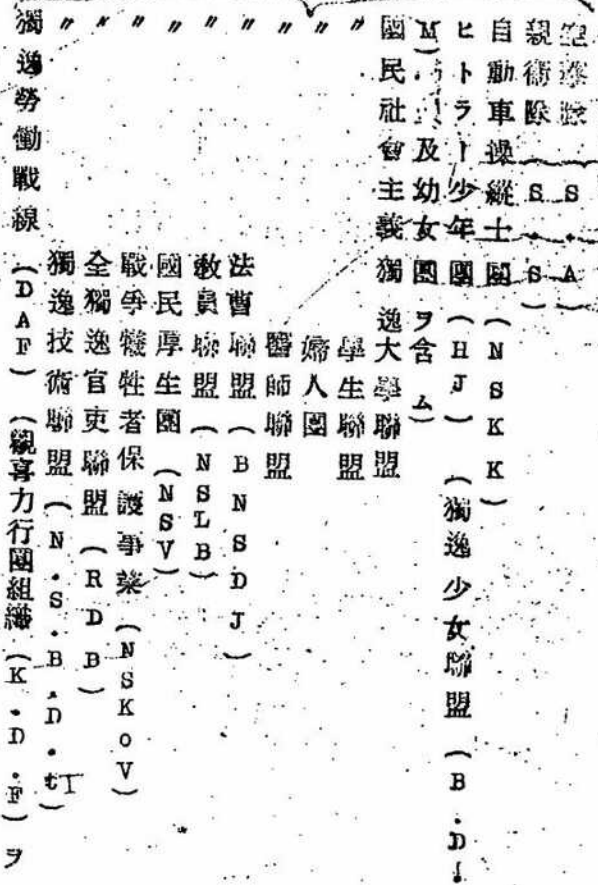 隊 S.A)
親衛隊 S.S)
自動車操縱士團(NSKK)
ヒトラー少年團(HJ)(獨逸少女聯盟(B.D.
M)及幼女團ヲ含ム)
國民社會主義獨逸大學聯盟
〃 學生聯盟
〃 婦人團
〃 醫師聯盟
〃 法曹聯盟(BNSDJ)
〃 敎員聯盟(NSLB)
〃 國民厚生團(NSV)
〃 戰爭犧牲者保護事業(NSKOV)
〃 全獨逸官吏聯盟(RDB)
〃 獨逸技術聯盟(N.S.B.D.t)
獨逸勞働戰線(DAF)(歡喜力行團組織(K.D.F)ヲ